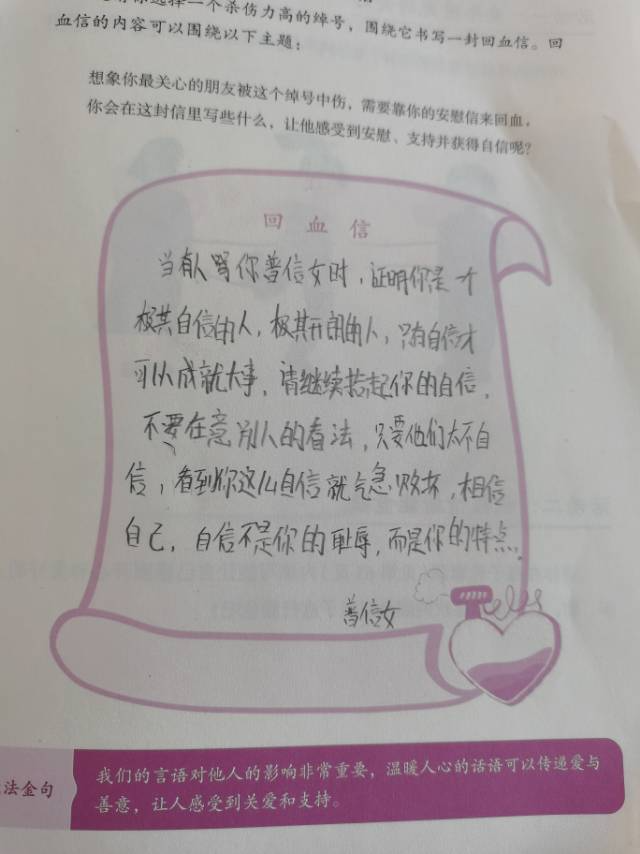 选择一个杀伤力高的绰号，围绕它书写一封回血信。回
血信的内容可以围绕以下主题：
想象你最关心的朋友被这个绰号中伤，需要靠你的安慰信来回血，
你会在这封信里写些什么，让他感受到安慰、支持并获得自信呢？
回血信
当有人骂你普信女时，证明你是一个
极其自信的人，极其开朗的人，只有自信才
可以成就大事，请继续拾起你的自信，
不要在意别人的看法，只要他们太不自
信，看到你这么自信就气急败坏，相信
自己，自信不是你的耻辱，而是你的特点。
普信女
法金句
我们的言语对他人的影响非常重要，温暖人心的话语可以传递爱与
善意，让人感受到关爱和支持。